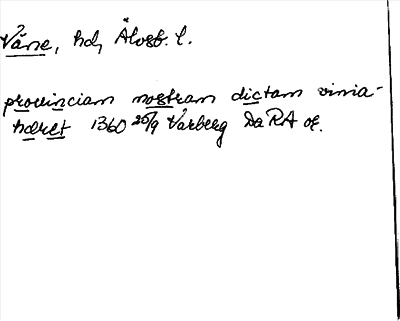 Väne, hd, Älvsb. l.
provinciam nostram dictam vinia-
hæret 1360 25/9 Varberg DaRA or.